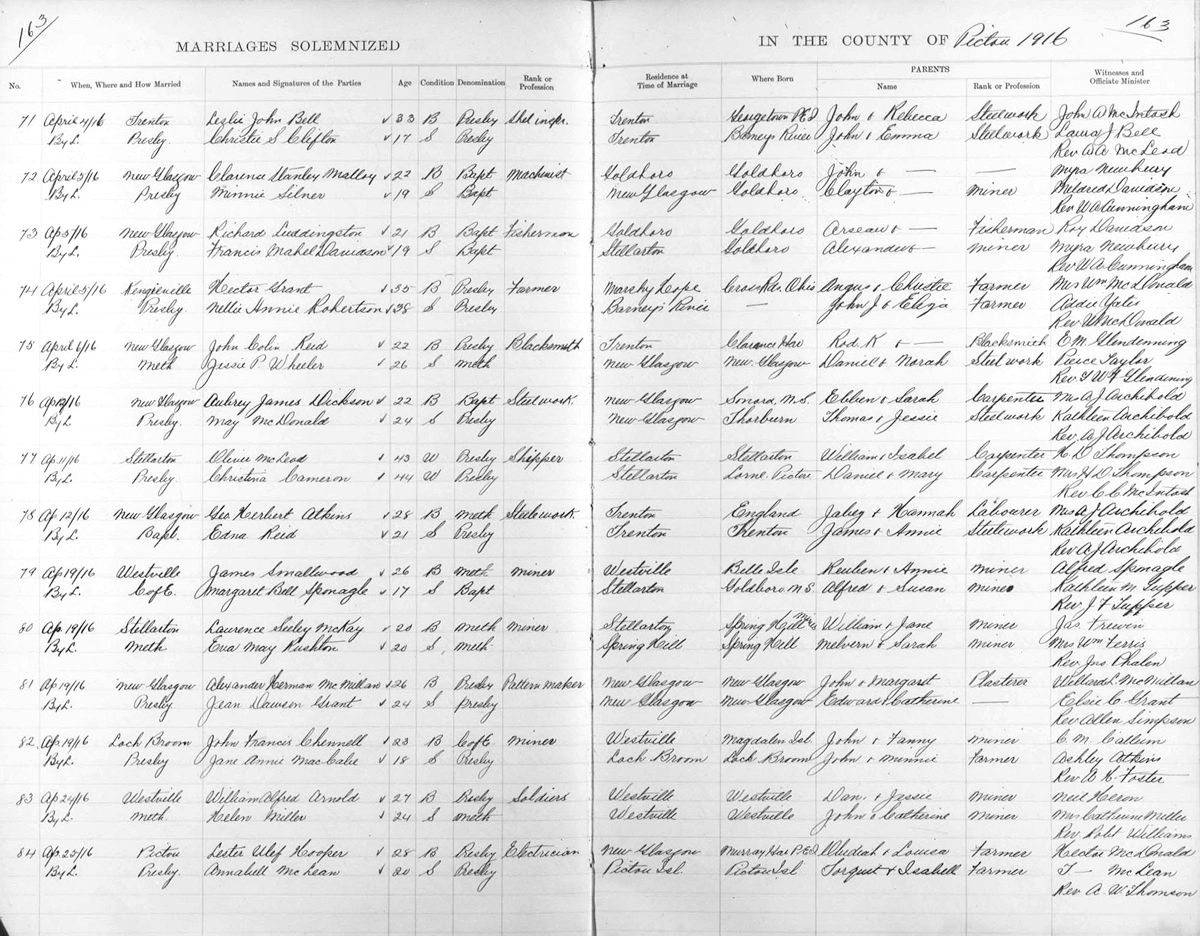 163
163
MARRIAGES SOLEMNIZED IN THE COUNTY OF Pictou 1916
No. When, Where and How Married Names and Signatures of the Parties Age Condition Denomination Rank or Profession Residence at Time of Marriage Where Born PARENTS Name Rank or Profession Witnesses and Officiate Minister
71 April 4/16 Trenton Leslie John Bell 33 B Presby Trenton Georgetown P.E.I John & Rebecca Steelwork John A McIntosh
By L. Presby. Christie S Clifton 17 S Presby Trenton Barneys River John & Emma Steelwork Laura J Bell
Rev W A McLeod
72 April 5/16 New Glasgow Clarence Stanley Malloy 22 B Bapt Machinist Goldboro Goldboro John & — — Myra Newbury
By L. Presby Minnie Silner 19 S Bapt New Glasgow Goldboro Clayton & — Miner Mildred Davidson
Rev W A Cunningham
73 Ap 5/16 New Glasgow Richard Luddington 21 B Bapt Fisherman Goldboro Goldboro & — Fisherman Roy Davidson
By L. Presby. Francis Mabel Davidson 19 S Bapt Stellarton Goldboro Alexander & — Miner Myra Newbury
Rev W A Cunningham
74 April 5/16 Hector Grant 35 B Presby Farmer Marshy Hope Cross Rds. Ohio Angus & Christie Farmer Mrs Wm McDonald
By L. Presby. Nettie Annie Robertson 38 S Presby Barney's River — John J & Eliza Farmer Addie Yates
Rev W McDonald
75 April 6/16 New Glasgow John Colin Reid 22 B Presby Blacksmith Trenton Clarence Har Rod. K & — Blacksmith E M Glendenning
By L. Meth Jessie P Wheeler 26 S Meth New Glasgow New Glasgow Daniel & Norah Steel work Pierce Taylor
Rev. Glendening
76 Ap New Glasgow Aubrey James Dickson 22 B Bapt Steelwork New Glasgow Sonora N.S. Ebben & Sarah Carpenter Mrs A J Archibald
By L Presby. May McDonald 24 S Presby New Glasgow Thorburn Thomas & Jessie Steelwork Kathleen Archibold
Rev. A J Archibold
77 Ap 11/16 Stellarton Oliver McLeod 43 W Presby Shipper Stellarton Stellarton William & Isabel Carpenter H D Thompson
By L. Presby Christina Cameron 44 W Presby Stellarton Lorne Pictou Daniel & Mary Carpenter Mrs H D Thompson
Rev C C McIntosh
78 Ap 12/16 New Glasgow Geo Herbert Atkins 28 B Meth Steelework Trenton England Jabez & Hannah Labourer Mrs A J Archibold
By L. Bapt. Edna Reid 21 S Presby Trenton Trenton James & Annie Steelwork Kathleen Archibold
Rev A J Archibold
79 Ap 19/16 Westville James Smallwood 26 B Meth Miner Westville Belle Isle Reuben & Annie Miner Alfred Sponagle
By L. C of E. Margaret Bell Sponagle 17 S Bapt Stellarton Goldboro N.S. Alfred & Susan Miner Kathleen M Tupper
Rev J F Tupper
80 Ap. 19/16 Stellarton Laurence Seeley McKay 20 B Meth Miner Stellarton Spring Hill Mines William & Jane Miner Jas Frewin
By L. Meth Eva May Rushton 20 S. Meth Spring Hill Spring Hill Melvern & Sarah Miner Mrs Wm Ferris
Rev Jns Phalen
81 Ap 19/16 New Glasgow Alexander Herman McMillan 26 B Presby Pattern maker New Glasgow New Glasgow John & Margaret Plasterer McMillan
By L. Presby Jean Dawson Grant 24 S Presby New Glasgow New Glasgow Edward & Catherine — Elsie C Grant
Rev Allen Simpson
82 Ap. 19/16 Loch Broom John Francis Chennell 23 B C of E. Miner Westville Magdalen Isl. John & Fanny Miner C M Callum
By L. Presby Jane Annie MacCabe 18 S Presby Loch Broom Loch Broom John & Minnie Farmer Ashley Atkins
Rev W K Foster
83 Ap 24/16 Westville William Alfred Arnold 27 B Presby Soldiers Westville Westville Dan. & Jessie Miner Neil Heron
By L. Meth. Helen Miller 24 S Meth Westville Westville John & Catherine Miner Mrs Miller
Rev Robt Williams
84 Ap. 25/16 Pictou Lester Ulef Hooper 28 B Presby Electrician New Glasgow Murray Har P.E.I & Louisa Farmer Hector McDonald
By L. Presby. Annabell McLean 20 S Presby Pictou Isl. Pictou Isl Torquet & Isabell Farmer T— McLean
Rev A W Thomson